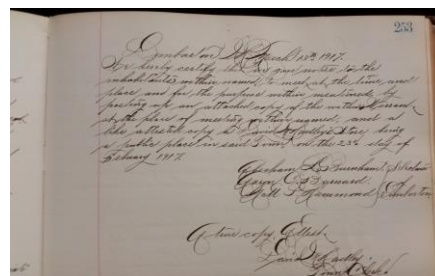 253
Dunbarton N.H. March 13th, 1917.
We hereby certify that we gave notice to the
inhabitants within named, to meet at the time and
place and for the purpose within mentioned by
posting up an attested copy of the within Warrant
at the place of meeting within named, and a
like attested copy at Store being
a public place in said Town on the 23d day of
February 1917.
Selectmen
Hammond
Dunbarton
A true copy Attest
Town Clerk